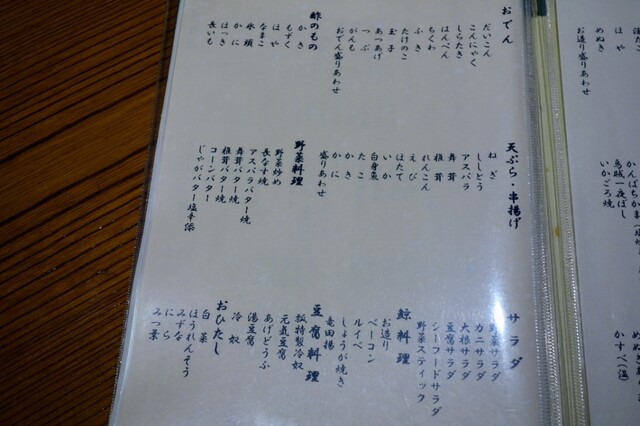 めぬき
はや
お造り盛りあわせ
かんぱちかま
烏賊一夜ぼし
いかごろ焼
かすべ(温)
おでん
だいこん
こんにゃく
しらたき
はんぺん
ちくわ
ふき
たけのこ
玉子
あつあげ
つぶ
がんも
おでん盛りあわせ
酢のもの
かき
もずく
はや
なまこ
氷頭
かに
ほっき
長いも
天ぷら・串揚げ
ねぎ
ししとう
アスパラ
舞茸
椎茸
れんこん
えび
ほたて
いか
白身魚
たこ
かき
かに
盛りあわせ
野菜料理
野菜炒め
長なす焼
アスパラバター焼
舞茸バター焼
椎茸バター焼
コーンバター
じゃがバター塩辛添
サラダ
野菜サラダ
カニサラダ
大根サラダ
豆腐サラダ
シーフードサラダ
野菜スティック
鯨料理
お造り
ベーコン
ルイベ
しょうが焼き
竜田揚
豆腐料理
特製冷奴
元気豆腐
あげどうふ
湯豆腐
冷奴
おひたし
白菜
ほうれんそう
みずな
にら
みつ葉